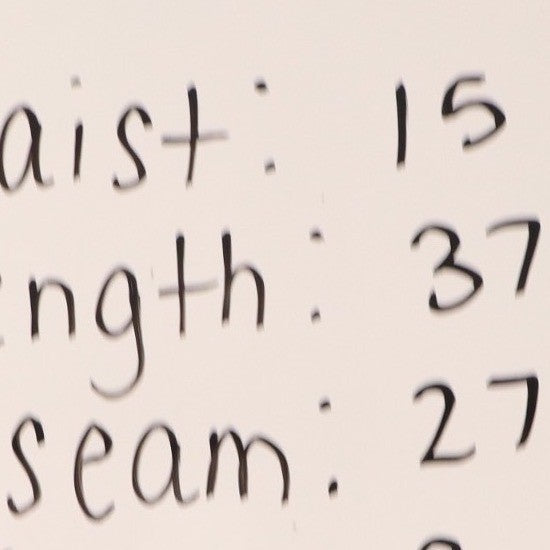 aist: 15
ngth: 37
seam: 27